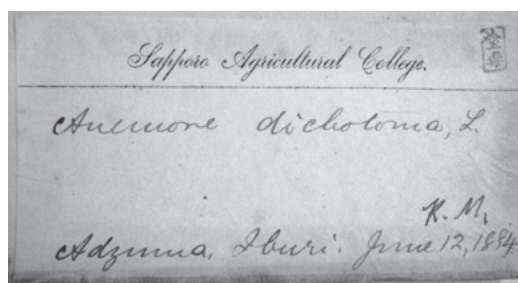 Sapporo Agricultural College.
Anemone dichotoma, L.
K. M.
Adzuma. Iburi. June 12, 1884.